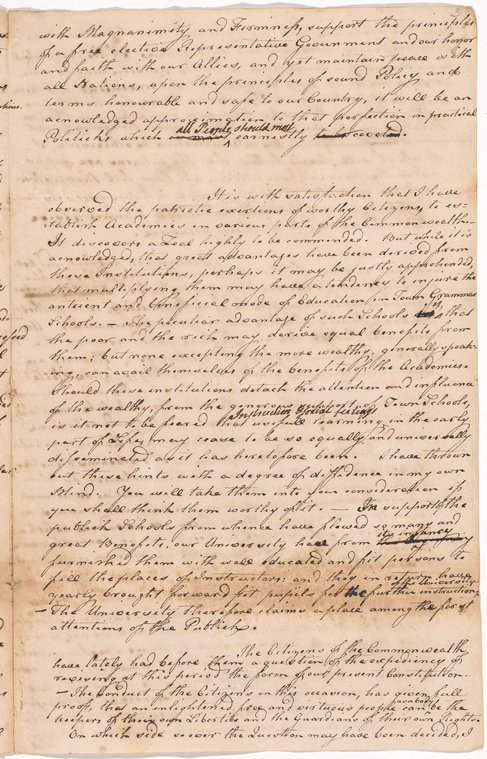 with Magnanimity and Firmness, support the principles
of a free elective Representative Government and our honor
and faith with our Allies, and yet maintain peace with
all Nations, upon the principles of sound Policy, and
terms honourable and safe to our Country, it will be an
acknowledged approximation to that perfection in practical
all People should most
Politicks which earnestly to be coveted.
It is with satisfaction that I have
observed the patriotic exertions of worthy Citizens, to es-
tablish Academies in various parts of the Commonwealth.—
It discovers a Zeal highly to be commended. But while it is
acknowledged, that great advantages have been derived from
these Institutions, perhaps it may be justly apprehended,
that multiplying them may have a tendency to injure the
antient and beneficial mode of Education in Town Grammar
Schools. — The peculiar advantage of such Schools is, that
the poor and the rich may derive equal benefits from
them; but none excepting the more wealthy, generally speak-
ing, can avail themselves of the benefits of the Academies.
Should these institutions detach the attention and influence
of the wealthy, from the generous support of Town Schools,
Instruction & social feelings
is it not to be feared that usefull learning, in the early
part of Life, may cease to be so equally and universally
disseminated as it has heretofore been. I have thrown
out these hints with a degree of diffidence in my own
Mind. You will take them into your consideration if
you shall think them worthy of it. — In support of the
publick Schools from whence have flowed so many and
its infancy
great Benefits, our University has from
furnished them with well educated and fit persons to
fill the places of Instructors: and they in return have
yearly brought forward fit pupils for the further instruction
of the University
— The University therefore claims a place among the first
attentions of the Publick.
The Citizens of the Commonwealth
have lately had before them a question of the expediency of
revising at this period the form of our present Constitution.
— The Conduct of the Citizens on this occasion, has given full
proof, that an enlightened, free and virtuous people can be the
as a body
keepers of their own Liberties and the Guardians of their own Rights.
On which side soever the Question may have been decided, I